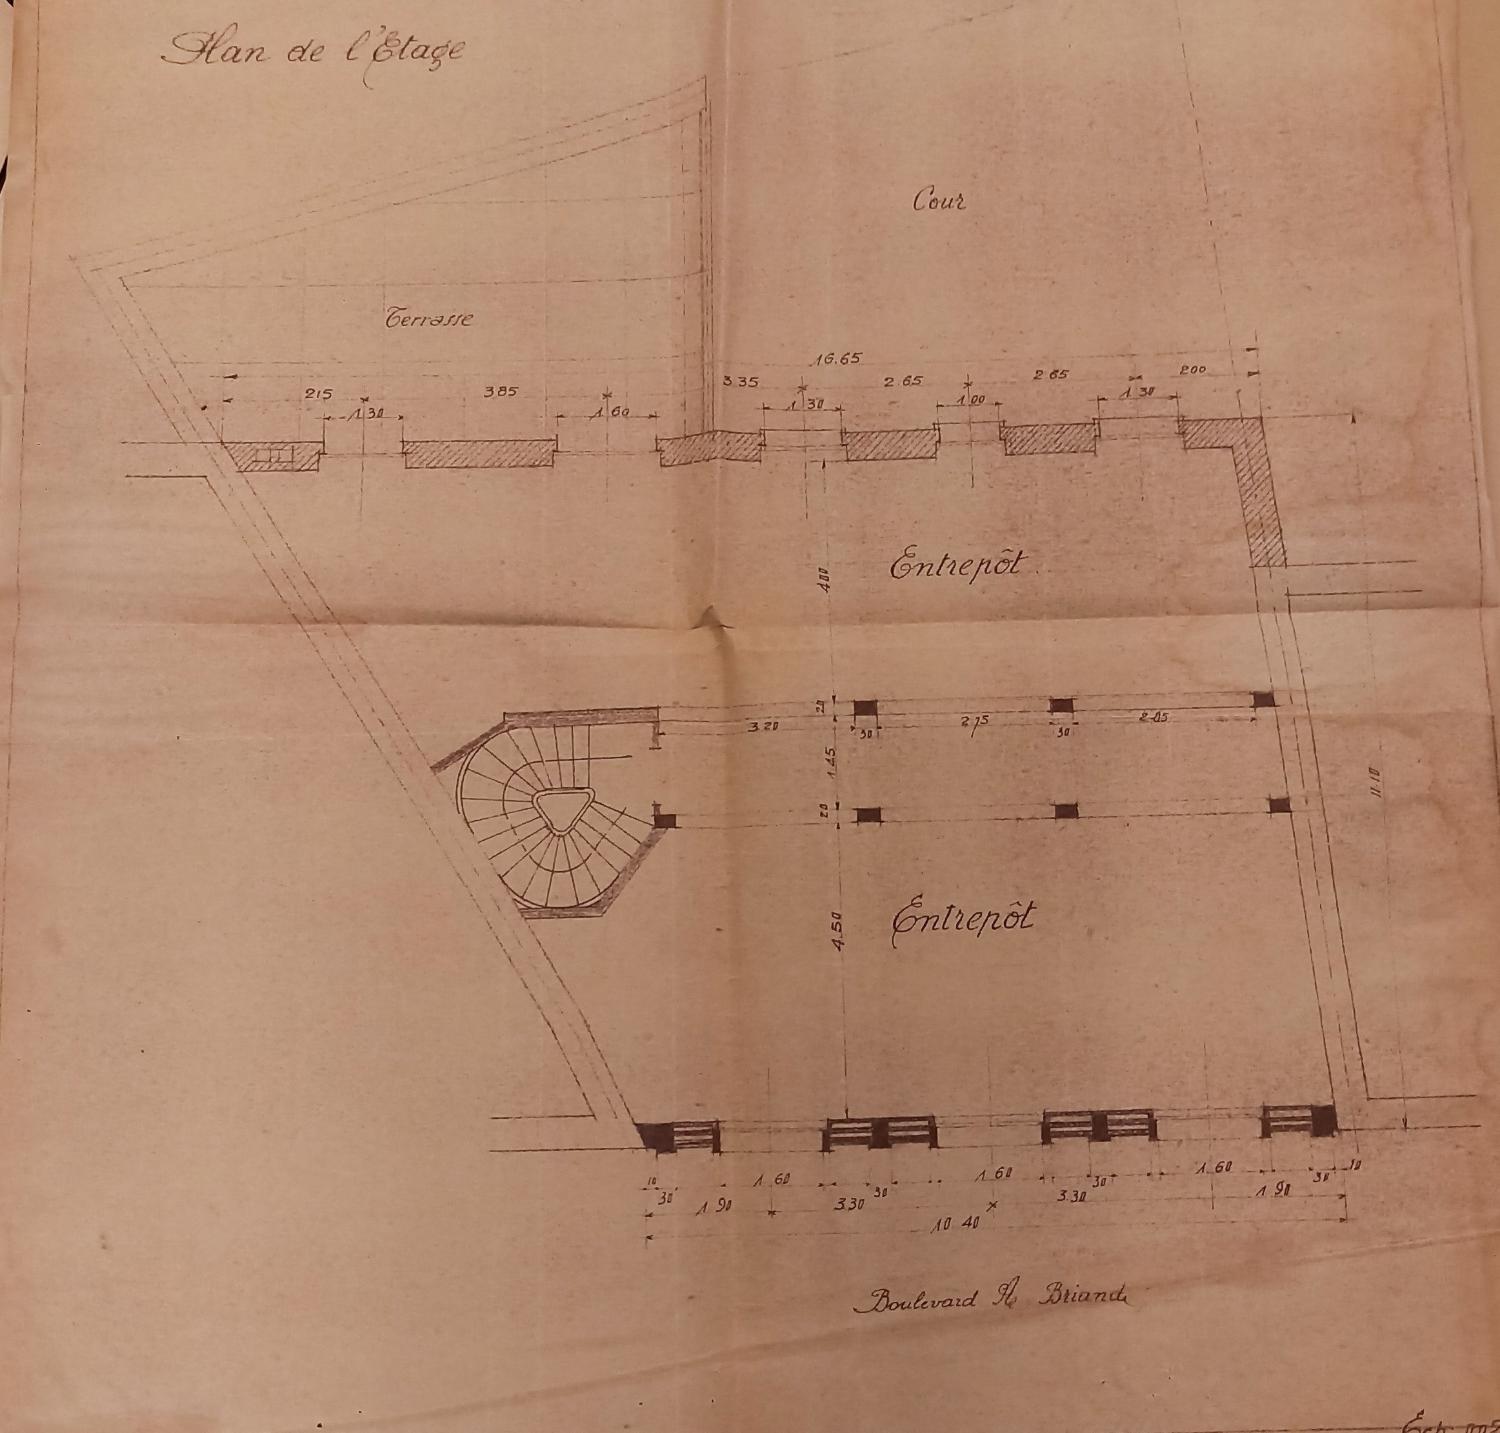 Plan de l'Etage
Cour
Terrasse
16.65
215 3.85 3.35 2.65 2.65 200
1.30 1.60 1.30 1.00 1.30
Entrepôt
400
20
3.20 30 2.75 30
1.45
20
11.10
Entrepôt
4.50
10 30 1.60 30 1.60 30 1.60 30 10
1.90 3.30 3.30 1.90
10.40
Boulevard A. Briand
Ech.